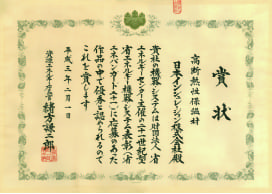 賞状
高断熱性保温材
日本インシュレーション株式会社殿
貴社の機器・システムは財団法人省
エネルギーセンター主催の二十一世紀型
省エネルギー機器・システム表彰(省
エネバンガード二十一)に応募のあった
作品中で優秀と認められるので
これを賞します
平成三年二月一日
資源エネルギー庁長官 緒方謙二郎